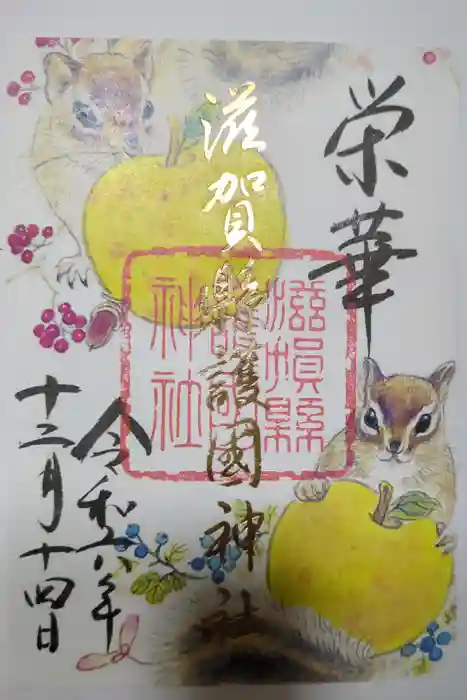 栄華
滋賀縣護國神社
滋賀縣
護國
神社
令和六年
十二月十四日